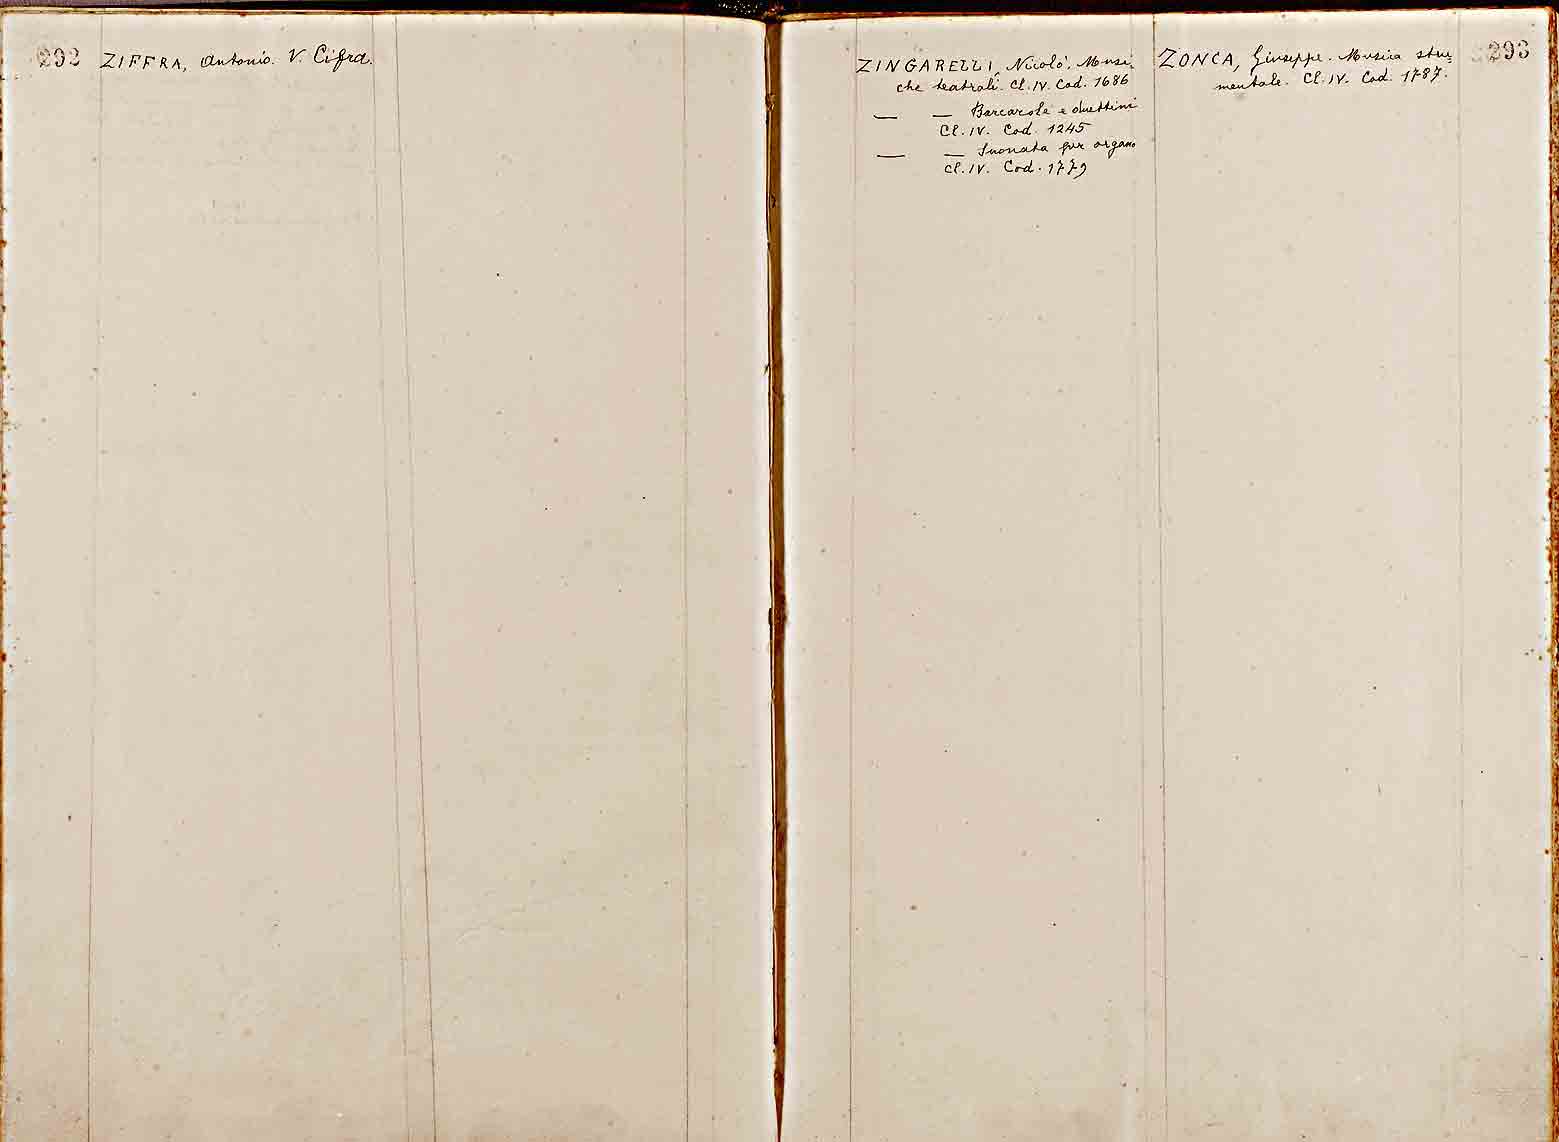 292
ZIFFRA, Antonio. V. Cifra.
ZINGARELLI, Nicolò. Musi-
che teatrali. Cl. IV. Cod. 1686
— — Barcarole e duettini
Cl. IV. Cod. 1245
— — Suonata per organo
Cl. IV. Cod. 1779
ZONCA, Giuseppe. Musica stru-
mentale. Cl. IV. Cod. 1787.
293